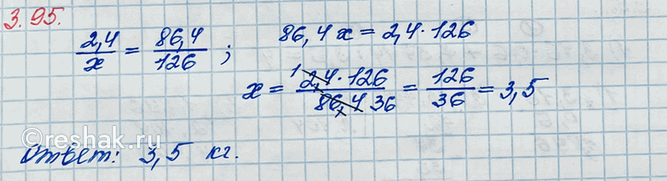 3.95.
2,4/x = 86,4/126 ; 86,4x = 2,4·126
x = 2,4·126/86,4 = 126/36 = 3,5
Ответ: 3,5 кг.
©reshak.ru